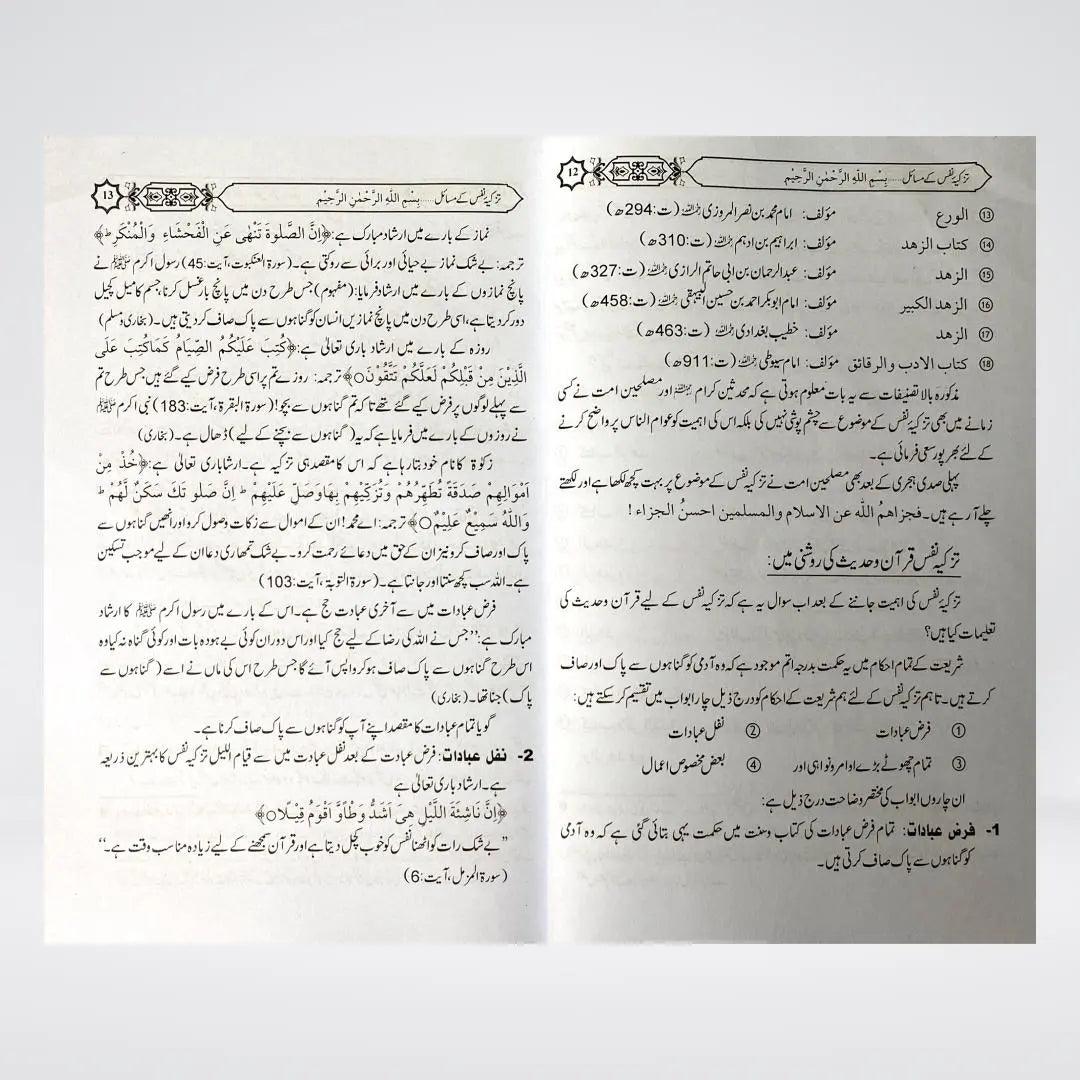 12
تزکیۂ نفس کے مسائل.....بِسْمِ اللهِ الرَّحْمٰنِ الرَّحِيْمِ
⑬ الورع مؤلف: امام محمد بن نصر المروزی رحمہ اللہ (ت:294ھ)
⑭ کتاب الزهد مؤلف: ابراہیم بن ادہم رحمہ اللہ (ت:310ھ)
⑮ الزهد مؤلف: عبدالرحمان بن ابی حاتم الرازی رحمہ اللہ (ت:327ھ)
⑯ الزهد الكبير مؤلف: امام ابوبکر احمد بن حسین البیہقی رحمہ اللہ (ت:458ھ)
⑰ الزهد مؤلف: خطیب بغدادی رحمہ اللہ (ت:463ھ)
⑱ كتاب الادب والرقائق مؤلف: امام سیوطی رحمہ اللہ (ت:911ھ)
مذکورہ بالا تصنیفات سے یہ بات معلوم ہوتی ہے کہ محدثین کرام اور مصلحین امت نے کسی
زمانے میں بھی تزکیۂ نفس کے موضوع سے چشم پوشی نہیں کی بلکہ اس کی اہمیت کو عوام الناس پر واضح کرنے
کے لئے بھرپور سعی فرمائی ہے۔
پہلی صدی ہجری کے بعد بھی مصلحین امت نے تزکیۂ نفس کے موضوع پر بہت کچھ لکھا ہے اور لکھتے
چلے آ رہے ہیں۔ فجزاهمُ الله عن الاسلام والمسلمين احسنُ الجزاء !
تزکیۂ نفس قرآن و حدیث کی روشنی میں:
تزکیۂ نفس کی اہمیت جاننے کے بعد اب سوال یہ ہے کہ تزکیۂ نفس کے لیے قرآن و حدیث کی
تعلیمات کیا ہیں؟
شریعت کے تمام احکام میں یہ حکمت بدرجہ اتم موجود ہے کہ وہ آدمی کو گناہوں سے پاک اور صاف
کرتے ہیں۔ تاہم تزکیۂ نفس کے لئے ہم شریعت کے احکام کو درج ذیل چار ابواب میں تقسیم کر سکتے ہیں:
① فرض عبادات ② نفل عبادات
③ تمام چھوٹے بڑے اوامر و نواہی اور ④ بعض مخصوص اعمال
ان چاروں ابواب کی مختصر وضاحت درج ذیل ہے:
1- فرض عبادات: تمام فرض عبادات کی کتاب و سنت میں حکمت یہی بتائی گئی ہے کہ وہ آدمی
کو گناہوں سے پاک صاف کرتی ہیں۔
13
تزکیۂ نفس کے مسائل.....بِسْمِ اللهِ الرَّحْمٰنِ الرَّحِيْمِ
نماز کے بارے میں ارشاد مبارک ہے: ﴿اِنَّ الصَّلٰوةَ تَنْهٰى عَنِ الْفَحْشَاءِ وَالْمُنْكَرِ ط﴾
ترجمہ: بے شک نماز بے حیائی اور برائی سے روکتی ہے۔ (سورۃ العنکبوت، آیت:45) رسول اکرم ﷺ نے
پانچ نمازوں کے بارے میں ارشاد فرمایا: (مفہوم) جس طرح دن میں پانچ بار غسل کرنا، جسم کا میل کچیل
دور کر دیتا ہے، اسی طرح دن میں پانچ نمازیں انسان کو گناہوں سے پاک صاف کر دیتی ہیں۔ (بخاری و مسلم)
روزہ کے بارے میں ارشاد باری تعالیٰ ہے: ﴿كُتِبَ عَلَيْكُمُ الصِّيَامُ كَمَا كُتِبَ عَلَى
الَّذِيْنَ مِنْ قَبْلِكُمْ لَعَلَّكُمْ تَتَّقُوْنَ○﴾ ترجمہ: روزے تم پر اسی طرح فرض کیے گئے ہیں جس طرح تم
سے پہلے لوگوں پر فرض کیے گئے تھے تا کہ تم گناہوں سے بچو! (سورۃ البقرۃ، آیت:183) نبی اکرم ﷺ
نے روزوں کے بارے میں فرمایا ہے کہ یہ (گناہوں سے بچنے کے لیے) ڈھال ہے۔ (بخاری)
زکوٰۃ کا نام خود بتا رہا ہے کہ اس کا مقصد ہی تزکیہ ہے۔ ارشاد باری تعالیٰ ہے: ﴿خُذْ مِنْ
اَمْوَالِهِمْ صَدَقَةً تُطَهِّرُهُمْ وَتُزَكِّيْهِمْ بِهَا وَصَلِّ عَلَيْهِمْ ط اِنَّ صَلٰوتَكَ سَكَنٌ لَّهُمْ ط
وَاللهُ سَمِيْعٌ عَلِيْمٌ○﴾ ترجمہ: اے محمد! ان کے اموال سے زکات وصول کرو اور انھیں گناہوں سے
پاک اور صاف کرو نیز ان کے حق میں دعائے رحمت کرو۔ بے شک تمھاری دعا ان کے لیے موجب تسکین
ہے۔ اللہ سب کچھ سنتا اور جانتا ہے۔ (سورۃ التوبۃ، آیت:103)
فرض عبادات میں سے آخری عبادت حج ہے۔ اس کے بارے میں رسول اکرم ﷺ کا ارشاد
مبارک ہے: ’’جس نے اللہ کی رضا کے لیے حج کیا اور اس دوران کوئی بے ہودہ بات اور کوئی گناہ نہ کیا وہ
اس طرح گناہوں سے پاک صاف ہو کر واپس آئے گا جس طرح اس کی ماں نے اسے (گناہوں سے
پاک) جنا تھا۔ (بخاری)
گویا تمام عبادات کا مقصد اپنے آپ کو گناہوں سے پاک صاف کرنا ہے۔
2- نفل عبادات: فرض عبادات کے بعد نفل عبادت میں سے قیام اللیل تزکیۂ نفس کا بہترین ذریعہ
ہے۔ ارشاد باری تعالیٰ ہے
﴿اِنَّ نَاشِئَةَ اللَّيْلِ هِىَ اَشَدُّ وَطْاً وَّ اَقْوَمُ قِيْلًا○﴾
’’بے شک رات کو اٹھنا نفس کو خوب کچل دیتا ہے اور قرآن سمجھنے کے لیے زیادہ مناسب وقت ہے۔‘‘
(سورۃ المزمل، آیت:6)